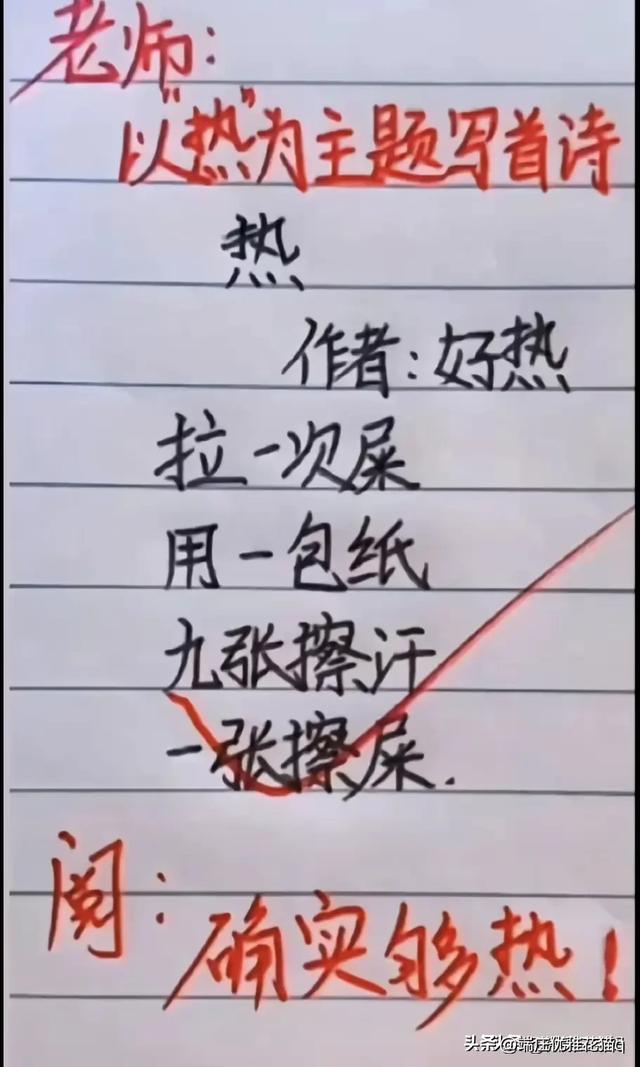 老师:
以"热"为主题写首诗
热
作者:好热
拉一次屎
用一包纸
九张擦汗
一张擦屎.
阅:确实够热!